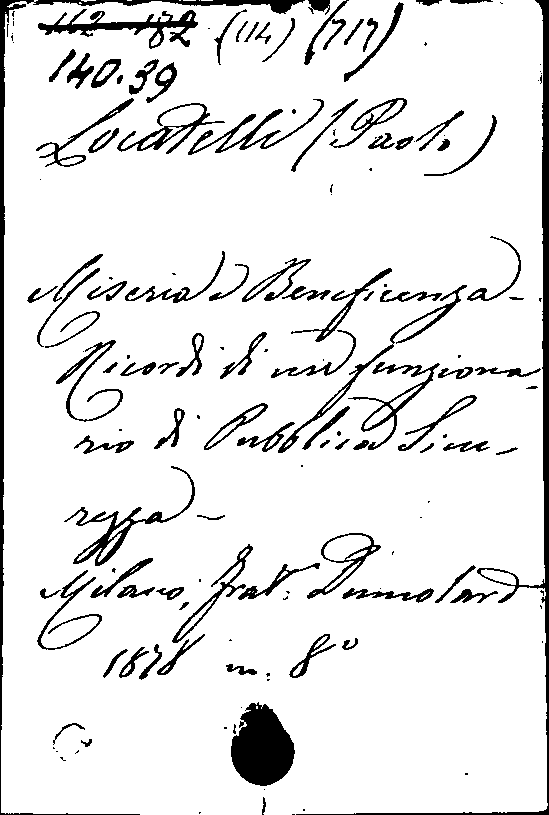 112 182 (114) (717)
140.39
Locatelli (Paolo)
Miseria e Beneficenza -
Ricordi di un funziona-
rio di Pubblica Sicu-
rezza -
Milano, frat. Dumolard
1878 in. 8°